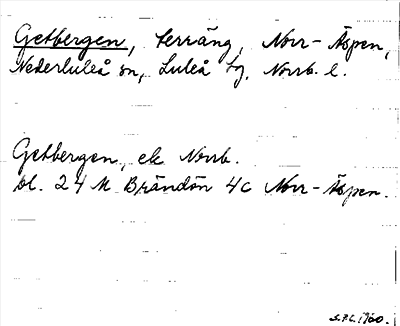 Getbergen, terräng, Norr-Äspen,
Nederluleå sn, Luleå tg, Norrb. l.
Getbergen, ek Norrb.
bl. 24 M Brändön 4c Norr-Äspen.
1960.